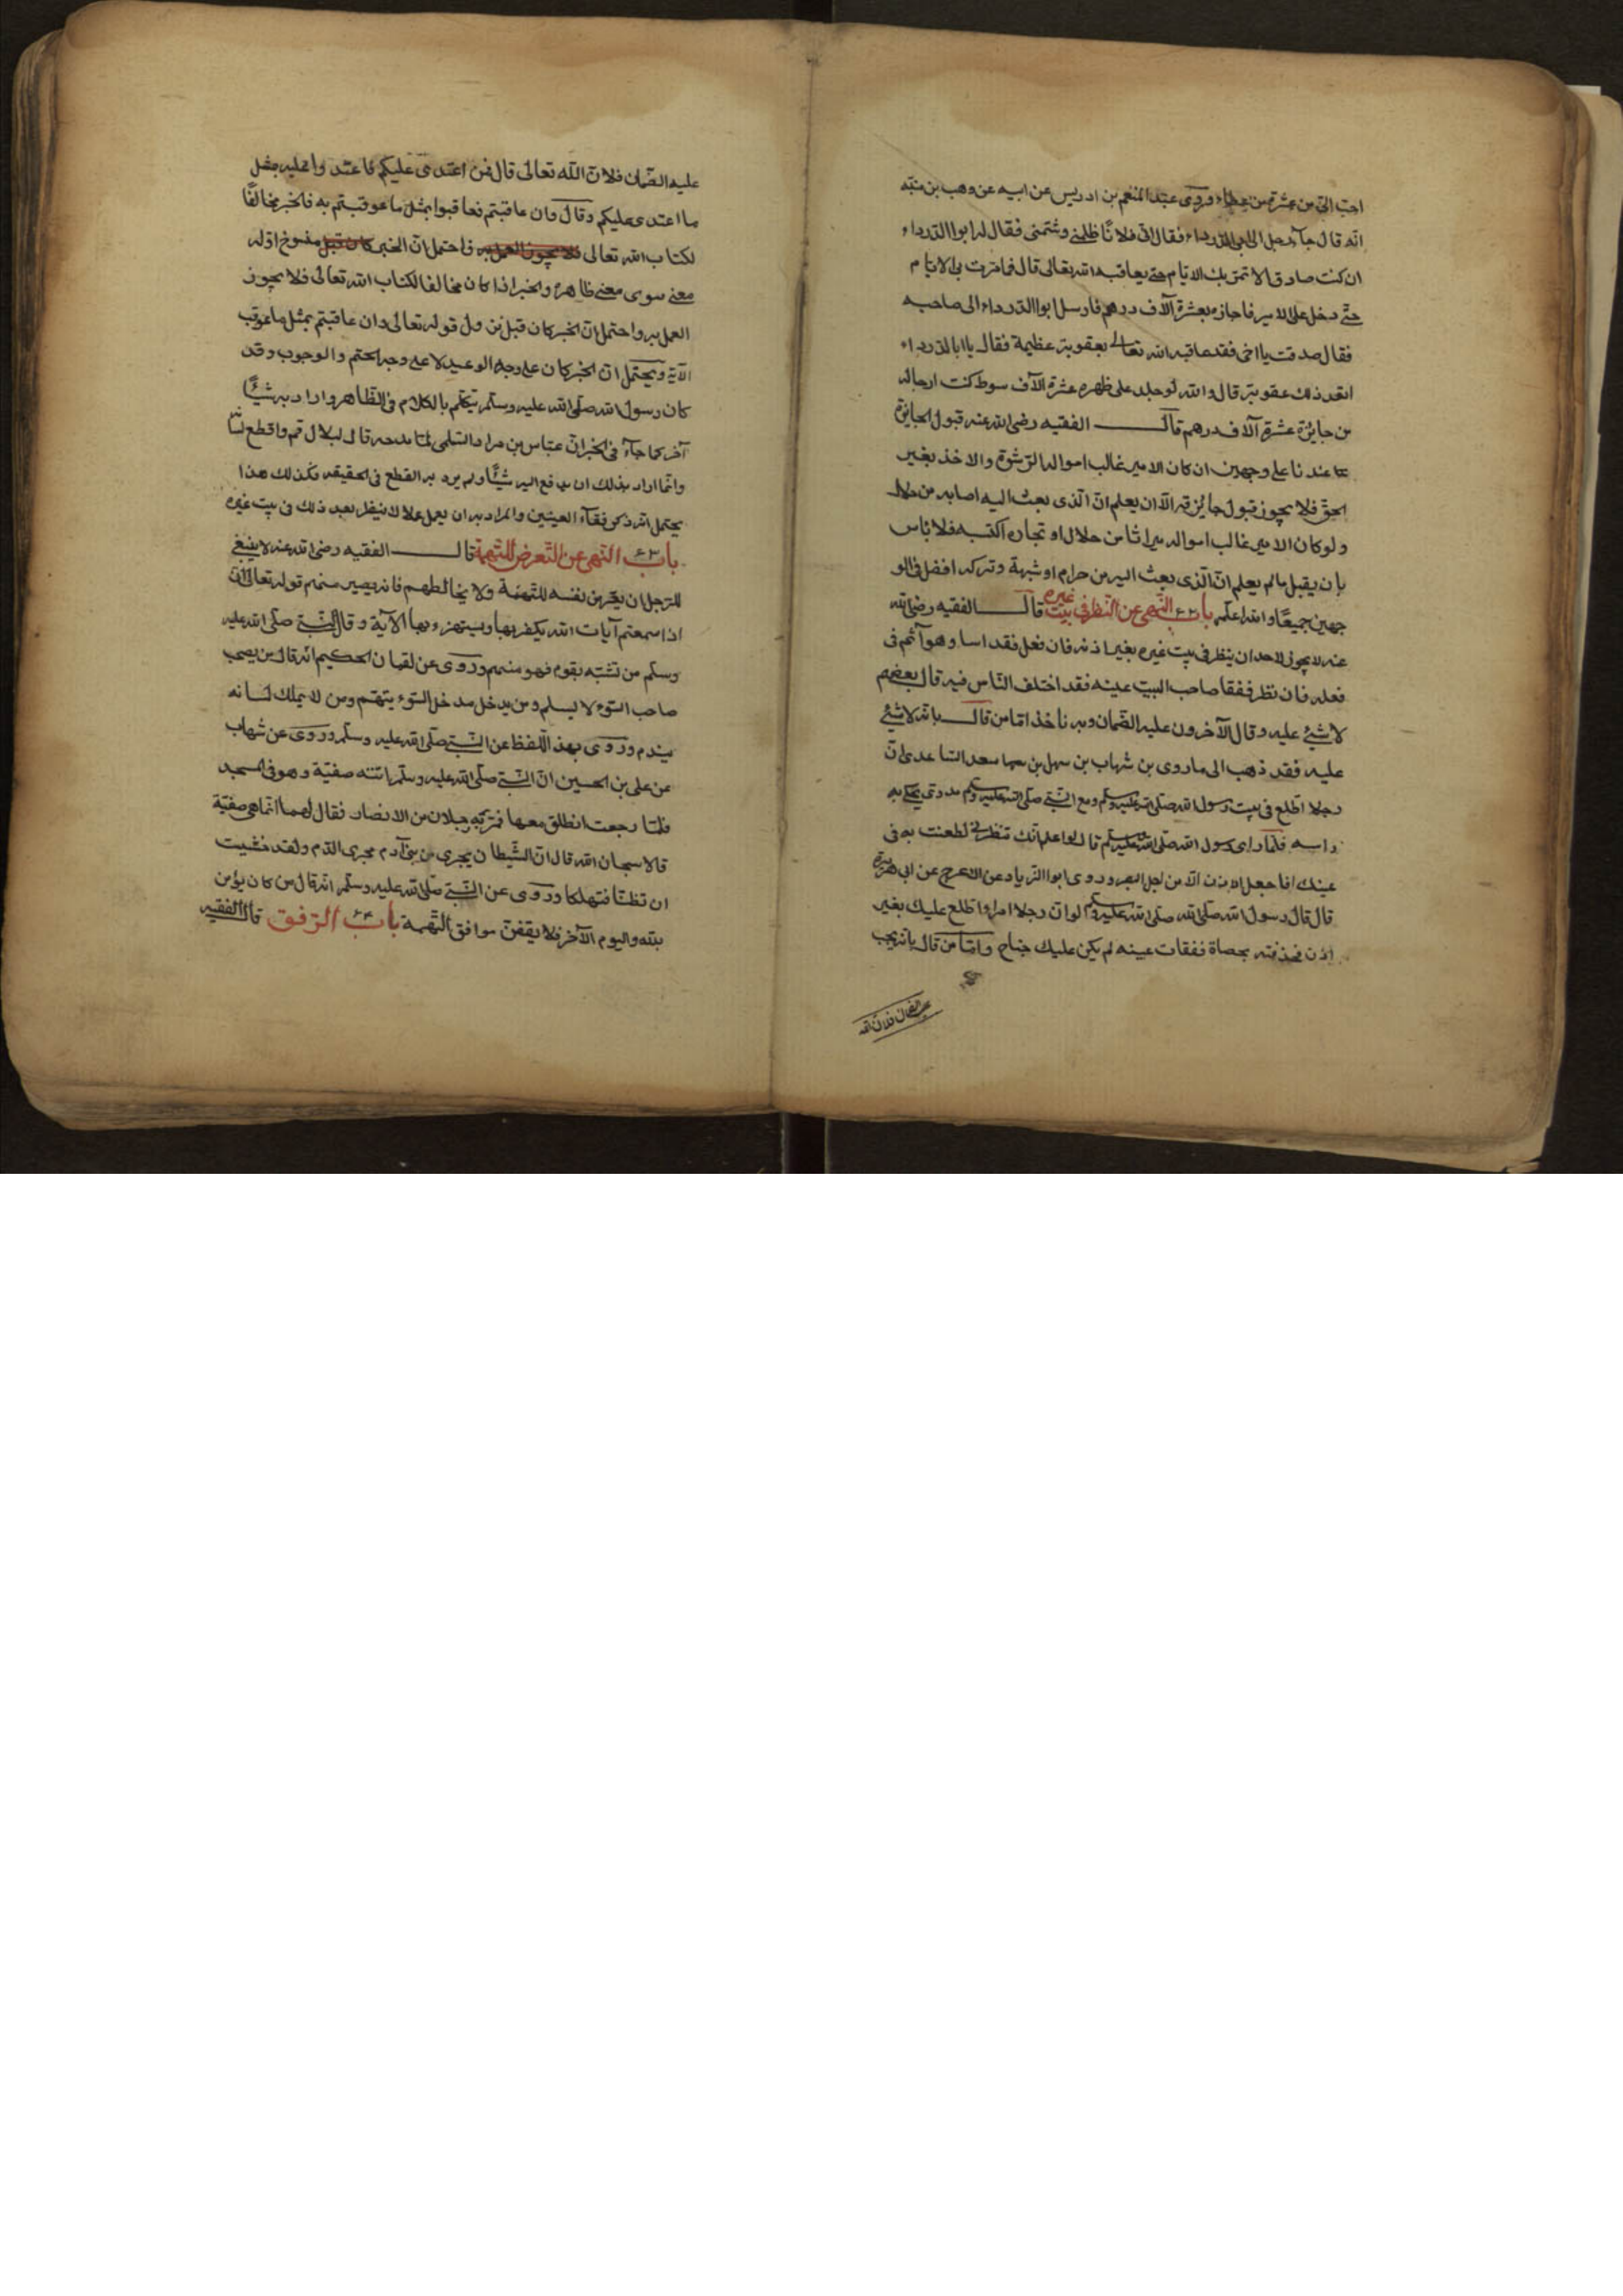 احبّ الىّ من عشرة من عطاء وروى عبد المنعم بن ادريس عن ابيه عن وهب بن منبّه
انّه قال جآء رجل الى ابى الدّرداء فقال انّ فلانًا ظلمنى وشتمنى فقال له ابوا الدّرداء
ان كنت صادقا لا تمرّ بك الايّام حتّى يعاقبه الله تعالى قال فما مرّت بى الايّام
حتّى دخل على الامير فاجازه بعشرة آلاف درهم فارسل ابوا الدّرداء الى صاحبه
فقال صدقت يا اخى فقد عاقبه الله تعالى بعقوبة عظيمة فقال يا ابا الدّرداء
اتعدّ ذلك عقوبة قال والله لو جلد على ظهره عشرة آلاف سوط كنت ارجا له
من جايزة عشرة آلاف درهم قال الفقيه رضى الله عنه قبول الجايزة
عندنا على وجهين ان كان الامير غالب امواله الرّشوة والاخذ بغير
الحقّ فلا يجوز قبول جايزته الّا ان يعلم انّ الّذى بعث اليه اصابه من حلال
ولو كان الامير غالب امواله ميراثا من حلال او تجارة اكتسبه فلا بأس
بان يقبل ما لم يعلم انّ الّذى بعث اليه من حرام او شبهة وتركه افضل فى الو
جهين جميعًا والله اعلم باب ٤٢ النّهى عن النّظر فى بيت غيره قال الفقيه رضى الله
عنه لا يجوز لاحد ان ينظر فى بيت غيره بغير اذنه فان فعل فقد اسا وهو آثم فى
فعله فان نظر ففقا صاحب البيت عينه فقد اختلف النّاس فيه قال بعضهم
لا شىئ عليه وقال الآخرون عليه الضّمان وبه ناخذ امّا من قال بانّه لا شىئ
عليه فقد ذهب الى ما روى بن شهاب بن سهل بن سعد السّاعدى انّ
رجلا اطّلع فى بيت رسول الله صلّى الله عليه وسلّم ومع النّبى صلّى الله عليه وسلّم مدرى يحكّ به
راسه فلمّا راى رسول الله صلّى الله عليه وسلّم قال لو اعلم انّك تنظرنى لطعنت به فى
عينك انما جعل الاذن الّا من اجل البصر وروى ابوا الزّياد عن الاعرج عن ابى هريرة
قال قال رسول الله صلّى الله عليه وسلّم لو انّ رجلا امراء اطّلع عليك بغير
اذن فخذفته بحصاة ففقات عينه لم يكن عليك جناح وامّا من قال بانّه يجب
عليه الضّمان فلانّ الله
عليه الضّمان فلانّ الله تعالى قال فمن اعتدى عليكم فاعتدوا عليه بمثل
ما اعتدى عليكم وقال وان عاقبتم فعاقبوا بمثل ما عوقبتم به فالخبر مخالفًا
لكتاب الله تعالى فلا يجوز العمل به فاحتمل انّ الخبر كان قبل منسوخ او له
معنى سوى معنى ظاهره والخبر اذا كان مخالفا لكتاب الله تعالى فلا يجوز
العمل به واحتمل انّ الخبر كان قبل نزول قوله تعالى وان عاقبتم بمثل ما عوقب
الآية ويحتمل انّ الخبر كان على وجه الوعيد لا على وجه الحتم والوجوب وقد
كان رسول الله صلّى الله عليه وسلّم يتكلّم بالكلام فى الظّاهر واراد به شيئًا
آخر كما جآء فى الخبر انّ عبّاس بن مراد السّلمى لمّا مدحه قال لبلال قم واقطع لسا
وانّما اراد بذلك ان يدفع اليه شيئًا ولم يرد به القطع فى الحقيقه فكذلك هذا
يحتمل انّه ذكر فقآء العينين والمراد به ان يعمل عملا لا ينظر بعد ذلك فى بيت غيره
باب ٤٣ النّهى عن التّعرض للتّهمة قال الفقيه رضى الله عنه لا ينبغى
للرّجل ان يعرض نفسه للتّهمة ولا يخالطهم فانه يصير منهم قوله تعالى ان
اذا سمعتم آيات الله يكفر بها ويستهزء بها الآية وقال النّبى صلّى الله عليه
وسلّم من تشبّه بقوم فهو منهم وروى عن لقمان الحكيم انّه قال من يصحب
صاحب السّوء لا يسلم ومن يدخل مدخل السّوء يتّهم ومن لا يملك لسانه
يندم وروى بهذ اللّفظ عن النّبى صلّى الله عليه وسلّم وروى عن شهاب
عن على بن الحسين انّ النّبى صلّى الله عليه وسلّم اتته صفيّة وهو فى المسجد
فلمّا رجعت انطلق معها فمرّ به رجلان من الانصار فقال لهما انّما هى صفيّة
قالا سبحان الله قال انّ الشّيطان يجرى من بنى آدم مجرى الدّم ولقد خشيت
ان تظنّا فتهلكا وروى عن النّبى صلّى الله عليه وسلّم انّه قال من كان يؤمن
بالله واليوم الآخر فلا يقفنّ مواقف التّهمة باب ٤٤ الرّفق قال الفقيه